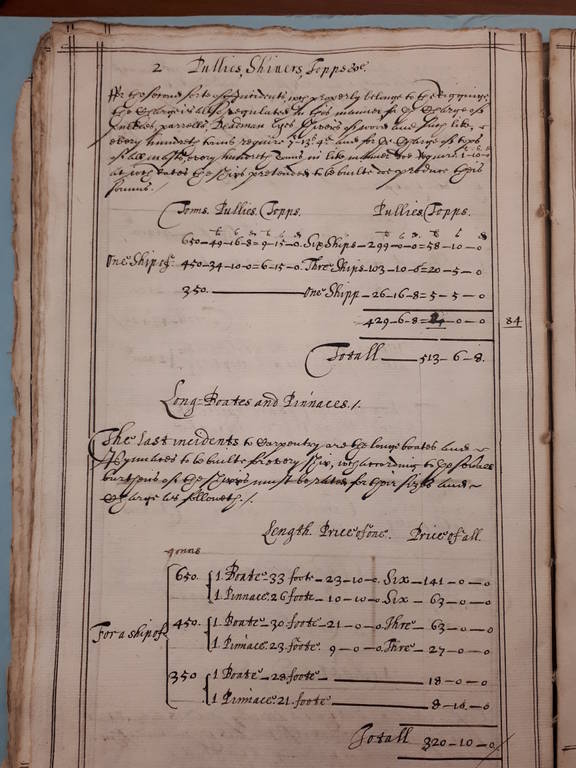 2 Pullies, Shivers, Topps &c.
For the second sorte of Incidents, wch properly belonge to the Rigginge,
the Charge is also regulated in this manner. for ye Charge of
Pullies, parrells, Deadman Eyes Shivers of wood and such like,
every hundreth tonns require 7-13-4 and for ye Charge of tops
of all masts, every hundreth Tonns in like manner doe require 1-10-0
at wch rates the Ships pretended to be builte doe produce this
somme.
Tonns. Pullies. Topps. Pullies. Topps.
650-49-16-8=9-15-0. Six Ships-299-0-0=58-10-0
One Ship of. 450-34-10-0=6-15-0. Three Ships-103-10-0=20-5-0
350. One Shipp-26-16-8=5-5-0
429-6-8=84-0-0 84
Totall 513-6-8.
Long=Boates and Pinnaces./.
The last incidents to Carpentry are the longe boates and
Pynnaces to be builte for every Ship, wch according to the severall
burthens of the Shipps must be rated for their sizes and
Charge as followeth./.
Length. Price of one. Price of all.
tonns
650. 1. Boate 33 foote-23-10-0. Six-141-0-0
1. Pinnace. 26 foote-10-10-0. Six-63-0-0
For a ship of 450. 1. Boate-30 foote-21-0-0. Three-63-0-0
1. Pinnace. 23. foote 9-0-0. Three-27-0-0
350 1. Boate-28 foote 18-0-0
1. Pinnace. 21. foote 8-10-0
Totall 320-10-0